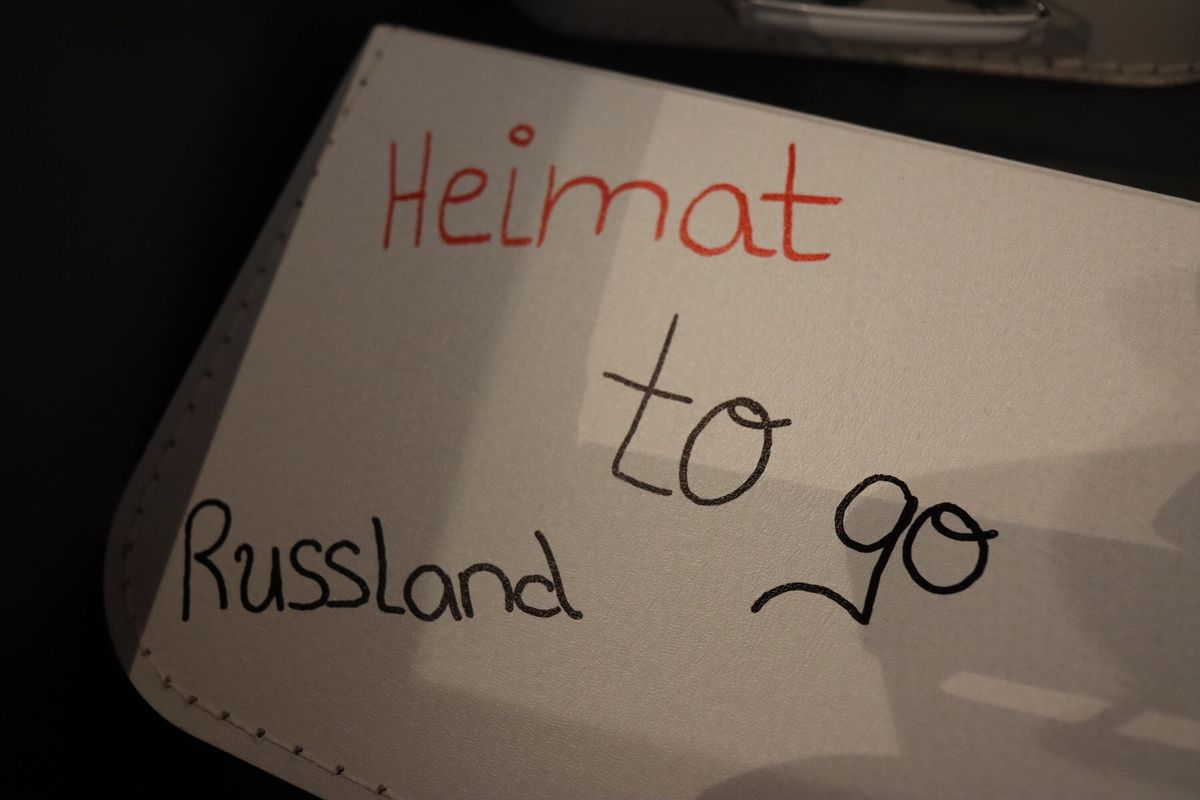 Heimat
to
go
Russland